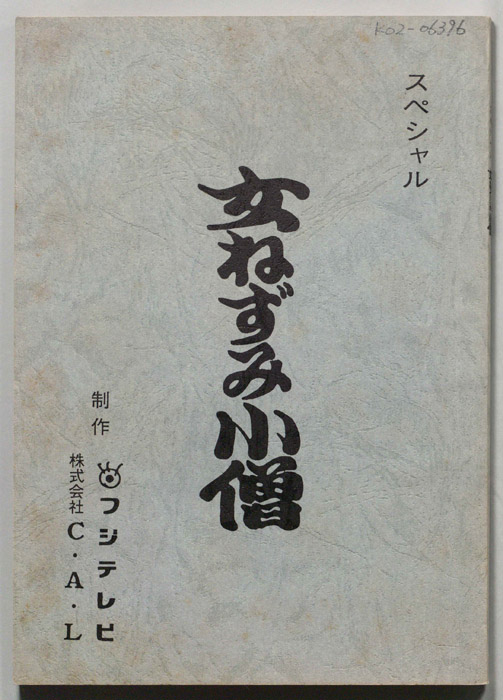 K02-06396
スペシャル
女ねずみ小僧
制作
フジテレビ
株式会社C・A・L